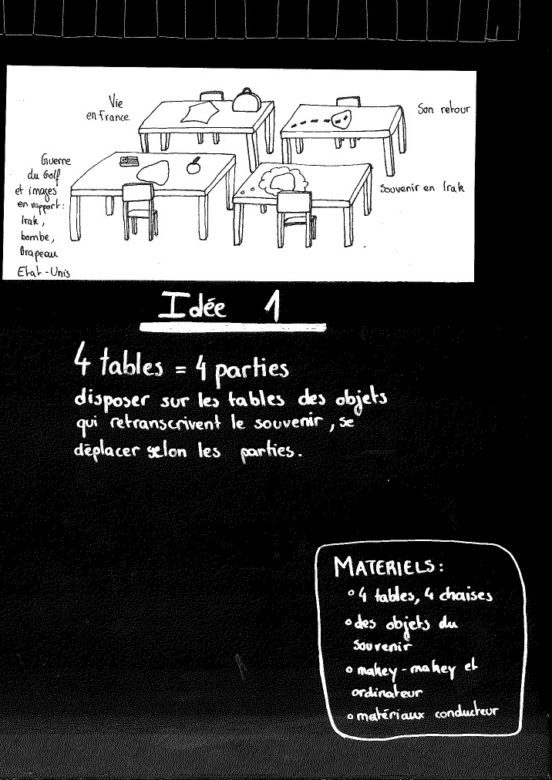 Vie
en France
Son retour
Guerre
du Golf
et images
en rapport :
Irak,
bombe,
Drapeau
Etat-Unis
Souvenir en Irak
Idée 1
4 tables = 4 parties
disposer sur les tables des objets
qui retranscrivent le souvenir, se
déplacer selon les parties.
MATERIELS:
° 4 tables, 4 chaises
° des objets du
souvenir
° makey-makey et
ordinateur
° matériaux conducteur